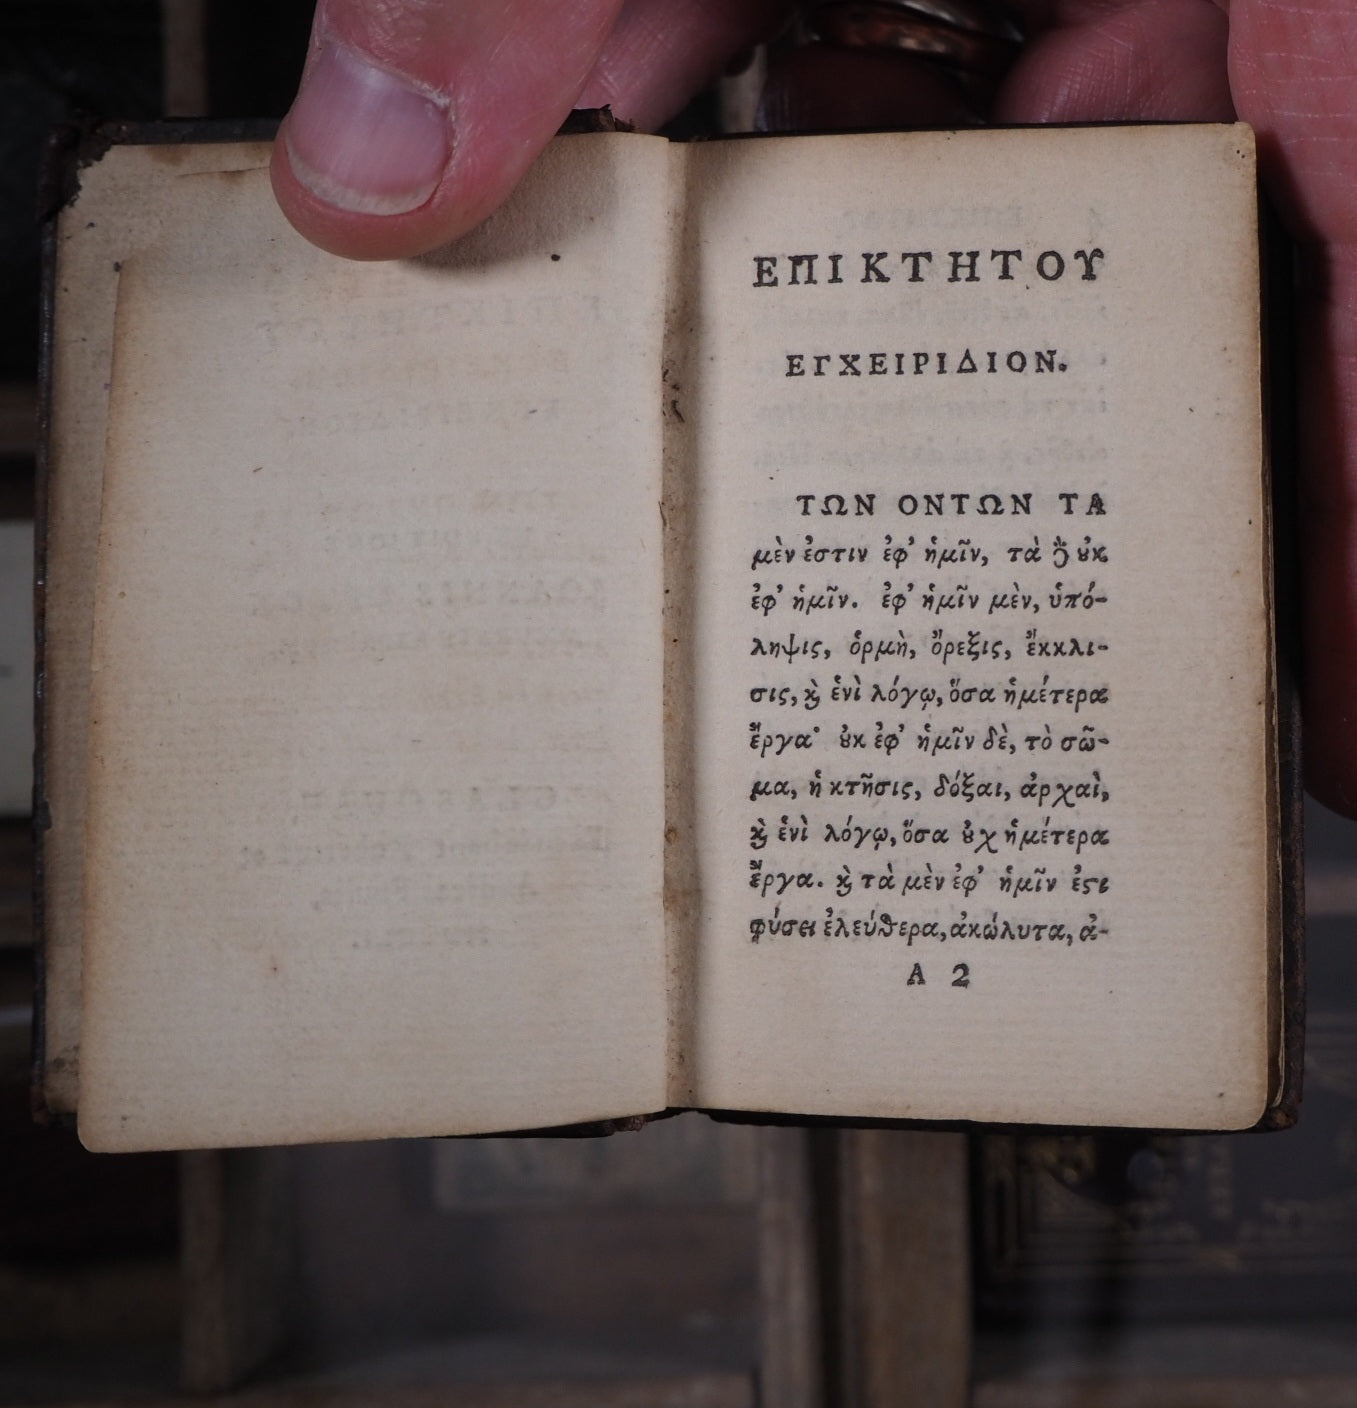 ΕΠΙΚΤΗΤΟΥ
ΕΓΧΕΙΡΙΔΙΟΝ.
ΤΩΝ ΟΝΤΩΝ ΤΑ
μὲν ἐστιν ἐφ' ἡμῖν, τὰ δὲ ȣ̓κ
ἐφ' ἡμῖν. ἐφ' ἡμῖν μὲν, ὑπό-
ληψις, ὁρμὴ, ὄρεξις, ἔκκλι-
σις, ϗ̀ ἑνὶ λόγῳ, ὅσα ἡμέτερα
ἔργα· ȣ̓κ ἐφ' ἡμῖν δὲ, τὸ σῶ-
μα, ἡ κτῆσις, δόξαι, ἀρχαὶ,
ϗ̀ ἑνὶ λόγῳ, ὅσα ȣ̓χ ἡμέτερα
ἔργα. ϗ̀ τὰ μὲν ἐφ' ἡμῖν ἐϛι
φύσει ἐλεύθερα, ἀκώλυτα, ἀ-
A 2